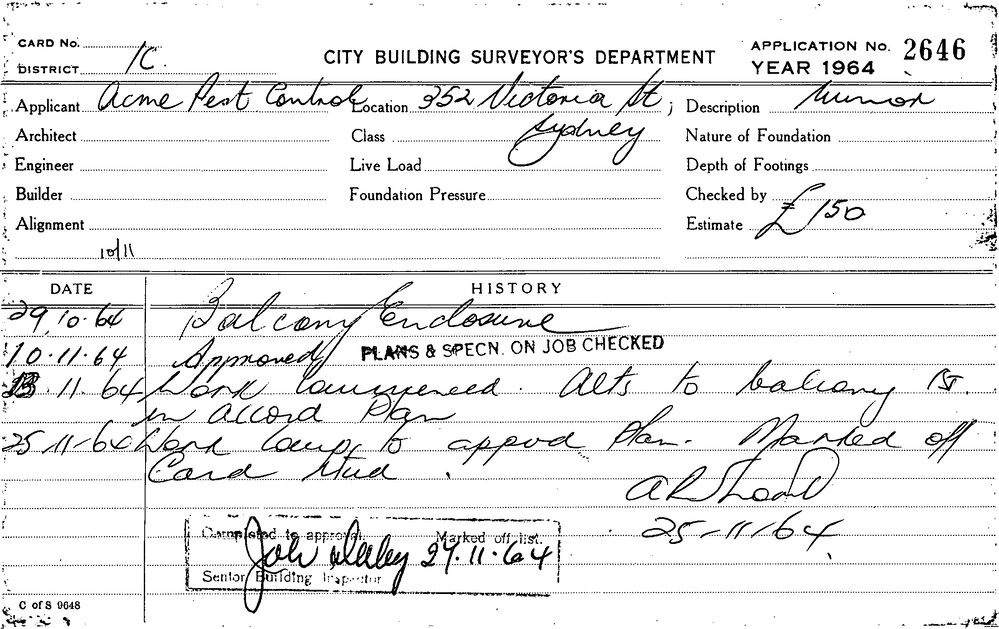 CARD No.
DISTRICT 1C.
CITY BUILDING SURVEYOR'S DEPARTMENT
APPLICATION No. 2646
YEAR 1964
Applicant Acme Pest Control Location 352 Victoria St, Description Minor
Architect Class Sydney Nature of Foundation
Engineer Live Load Depth of Footings
Builder Foundation Pressure Checked by
Alignment Estimate £150
10/11
DATE HISTORY
29.10.64 Balcony Enclosure
10.11.64 Approved PLANS & SPECN. ON JOB CHECKED
13.11.64 Work commenced. Alts to balcony is.
in accord Plan
25-11-64 Work comp. to appvd plan. Marked off
Card stud.
25-11-64.
Completed to approval. Marked off list.
27.11.64
Senior Building Inspector
C of S 9648